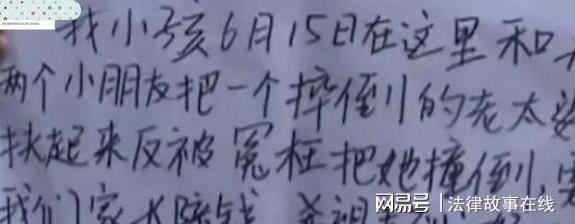 我小孩6月15日在这里和
两个小朋友把一个摔倒的老太婆
扶起来反被冤枉把她撞倒,
我们家大赔钱
网易号 | 法律故事在线